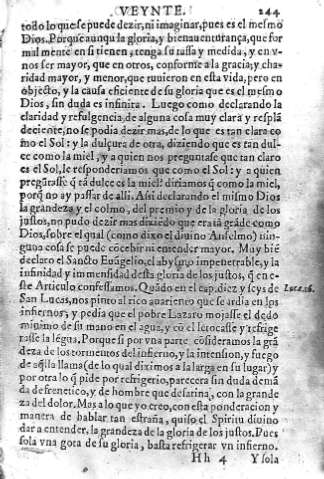 VEYNTE. 244
todo lo que se puede dezir, ni imaginar, pues es el mesmo
Dios. Porque aunque la gloria, y bienauenturança, que for
mal mente en si tienen, tenga su tassa y medida, y en v-
nos ser mayor, que en otros, conforme a la gracia, y cha-
ridad mayor, y menor, que tuuieron en esta vida, pero en
objecto, y la causa eficiente de su gloria que es el mesmo
Dios, sin duda es infinita. Luego como declarando la
claridad y refulgencia, de alguna cosa muy clara y respla
deciente, no se podia dezir mas, de lo que es tan clara co
mo el Sol: y la dulçura de otra, diziendo que es tan dul-
ce como la miel, y a quien nos preguntase que tan claro
es el Sol, le responderiamos que como el Sol: y a quien
pregũtasse q̃ tã dulce es la miel? diriamos q̃ como la miel,
porq̃ no ay passar de alli. Assi declarando el mismo Dios
la grandeza y el colmo, del premio y de la gloria de los
justos, no pudo dezir mas diziendo que era tã grãde como
Dios, sobre el qual (como dixo el diuino Anselmo) nin-
guna cosa se puede cõcebir ni entender mayor. Muy biẽ
declaro el Sancto Euãgelio, el abysmo impenetrable, y la
infinidad y immensidad desta gloria de los justos, q̃ en e-
ste Articulo confessamos. Quãdo en el cap. diez y seys de
San Lucas, nos pinto al rico auariento que se ardia en los
infiernos, y pedia que el pobre Lazaro mojasse el dedo
minimo de su mano en el agua, y cõ el le tocasse y refrige
rasse la lẽgua. Porque si por vna parte cõsideramos la grã
deza de los tormentos del infierno, la intension, y fuego
de aq̃lla llama (de lo qual diximos a la larga en su lugar) y
por otra lo q̃ pide por refrigerio, parecera sin duda demã
da de frenetico, y de hombre que desatina, con la grande
za del dolor. Mas a lo que yo creo, con esta ponderacion y
manera de hablar tan estraña, quiso el Spiritu diuino
dar a entender, la grandeza de la gloria de los justos. Pues
sola vna gota de su gloria, basta refrigerar vn infierno.
Hh 4 Y sola
Luca. 16.